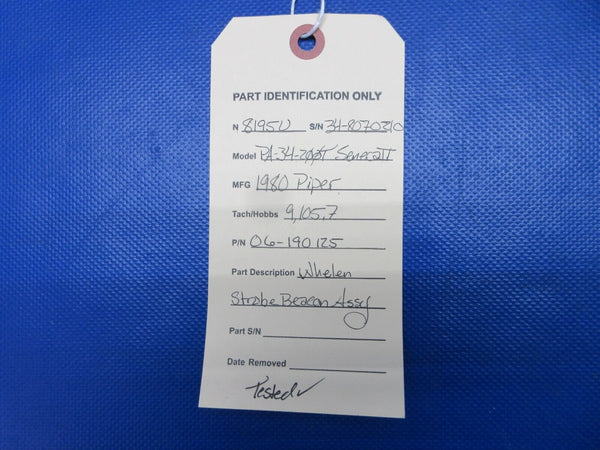 PART IDENTIFICATION ONLY
N 8195U S/N 34-8070310
Model PA-34-200T Seneca II
MFG 1980 Piper
Tach/Hobbs 9,105.7
P/N 06-190125
Part Description Whelen
Strobe Beacon Assy
Part S/N
Date Removed
Tested✓